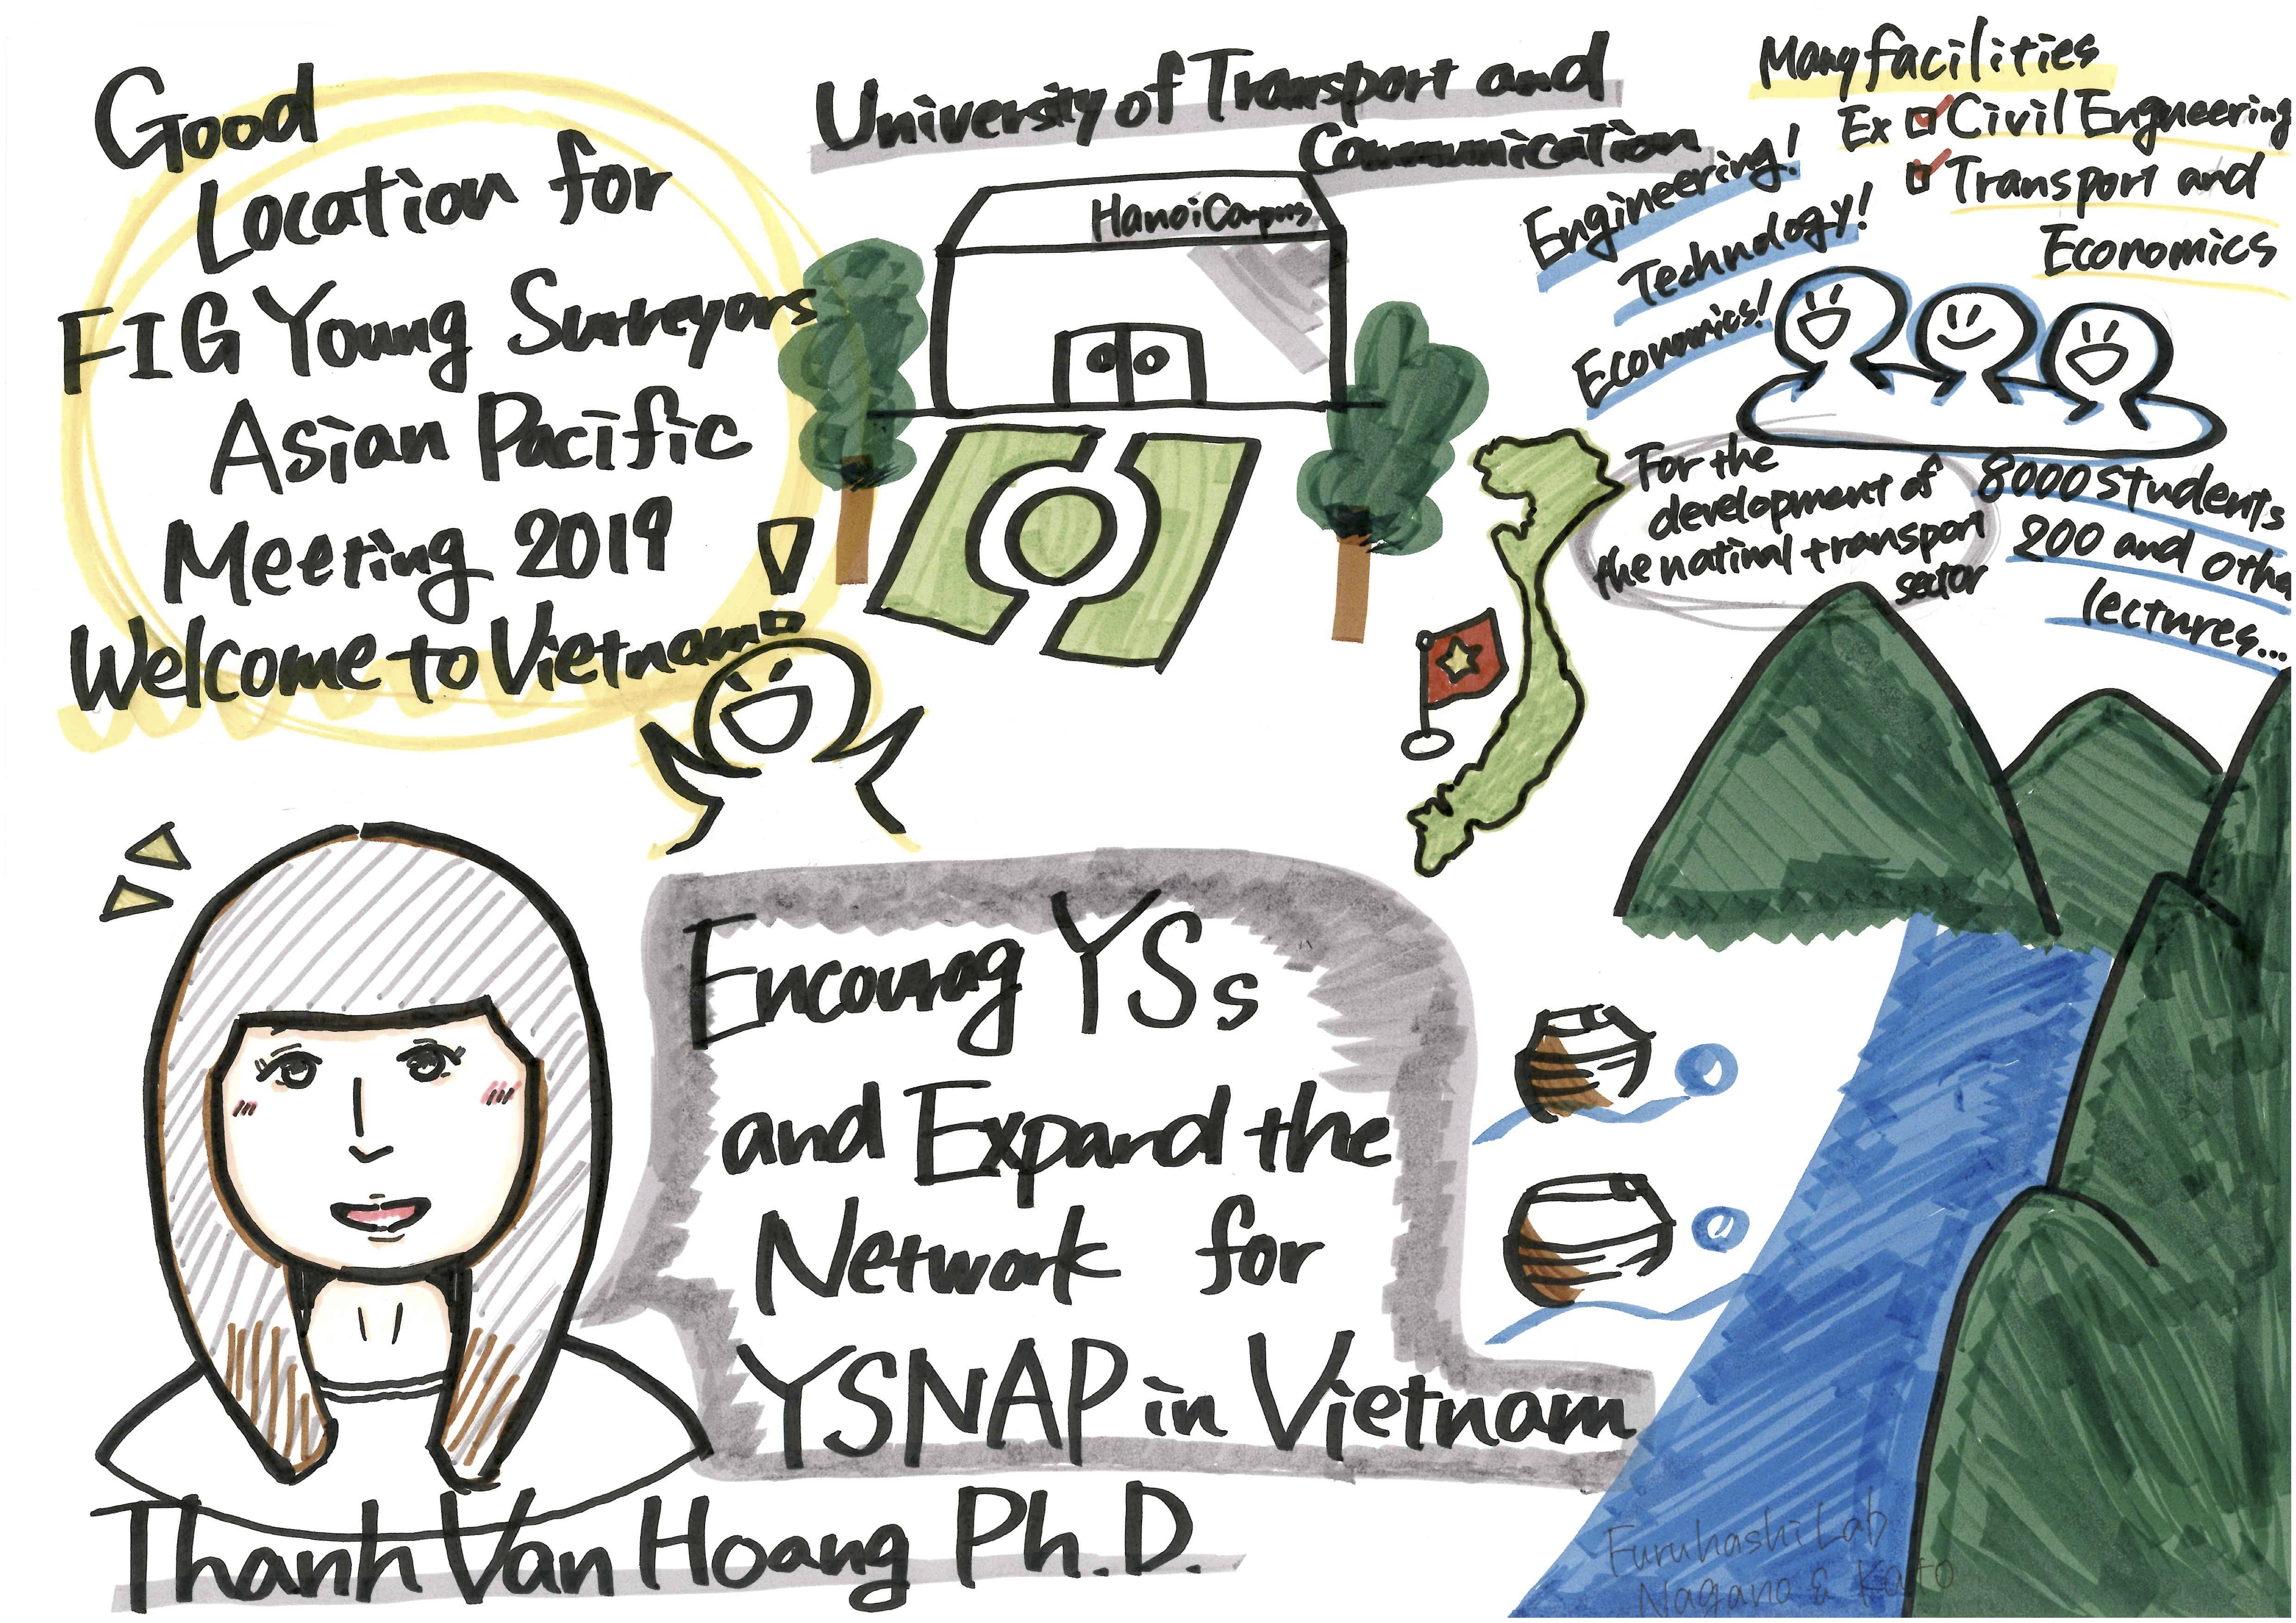 Good
Location for
FIG Young Surveyors
Asian Pacific
Meeting 2019
Welcome to Vietnam!!
University of Transport and
Communication
Hanoi Campus
Engineering!
Technology!
Economics!
Many facilities
Ex ☑ Civil Engineering
☑ Transport and
Economics
For the
development of
the national transport
sector
8000 students
200 and othe
lectures...
Encourag YSs
and Expand the
Network for
YSNAP in Vietnam
Thanh Van Hoang Ph.D.
Furuhashi Lab
Nagano & Kato